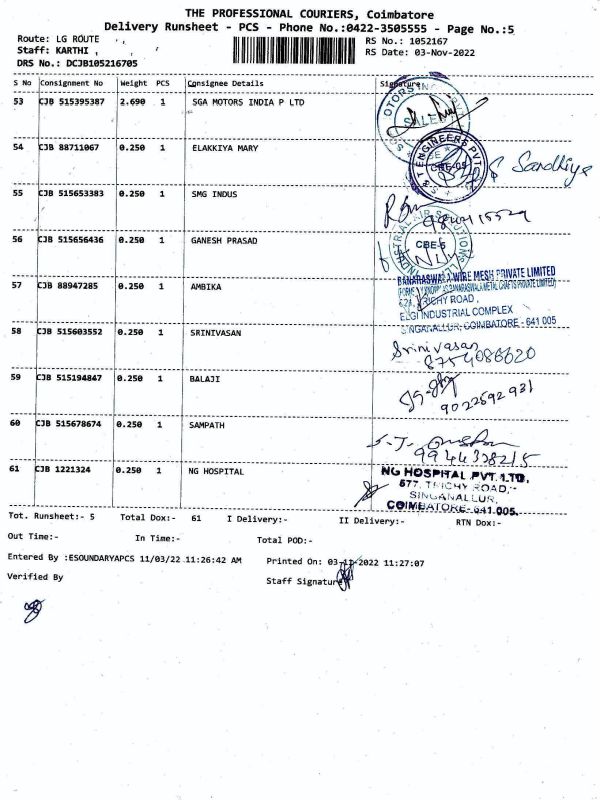 THE PROFESSIONAL COURIERS, Coimbatore
Delivery Runsheet - PCS - Phone No.:0422-3505555 - Page No.:5
Route: LG ROUTE
RS No.: 1052167
Staff: KARTHI ,
RS Date: 03-Nov-2022
DRS No.: DCJB105216705
S No Consignment No Weight PCS Consignee Details Signature
53 CJB 515395387 2.690 1 SGA MOTORS INDIA P LTD
SALEM
54 CJB 88711067 0.250 1 ELAKKIYA MARY
ENGINEERS PVT
CBE-05
Sandhiya
55 CJB 515653383 0.250 1 SMG INDUS
56 CJB 515656436 0.250 1 GANESH PRASAD
INDUSTRIAL AIR SOLUTIONS
CBE-5
57 CJB 88947285 0.250 1 AMBIKA
BANARASWALA WIRE MESH PRIVATE LIMITED
TRICHY ROAD,
ELGI INDUSTRIAL COMPLEX
SINGANALLUR, COIMBATORE - 641 005
58 CJB 515603552 0.250 1 SRINIVASAN
Srinivasan
8754086620
59 CJB 515194847 0.250 1 BALAJI
9022592931
60 CJB 515678674 0.250 1 SAMPATH
9944338215
61 CJB 1221324 0.250 1 NG HOSPITAL
NG HOSPITAL PVT. LTD.
577, TRICHY ROAD,
SINGANALLUR,
COIMBATORE-641 005.
Tot. Runsheet:- 5 Total Dox:- 61 I Delivery:- II Delivery:- RTN Dox:-
Out Time:- In Time:- Total POD:-
Entered By :ESOUNDARYAPCS 11/03/22 11:26:42 AM Printed On: 03-11-2022 11:27:07
Verified By Staff Signature